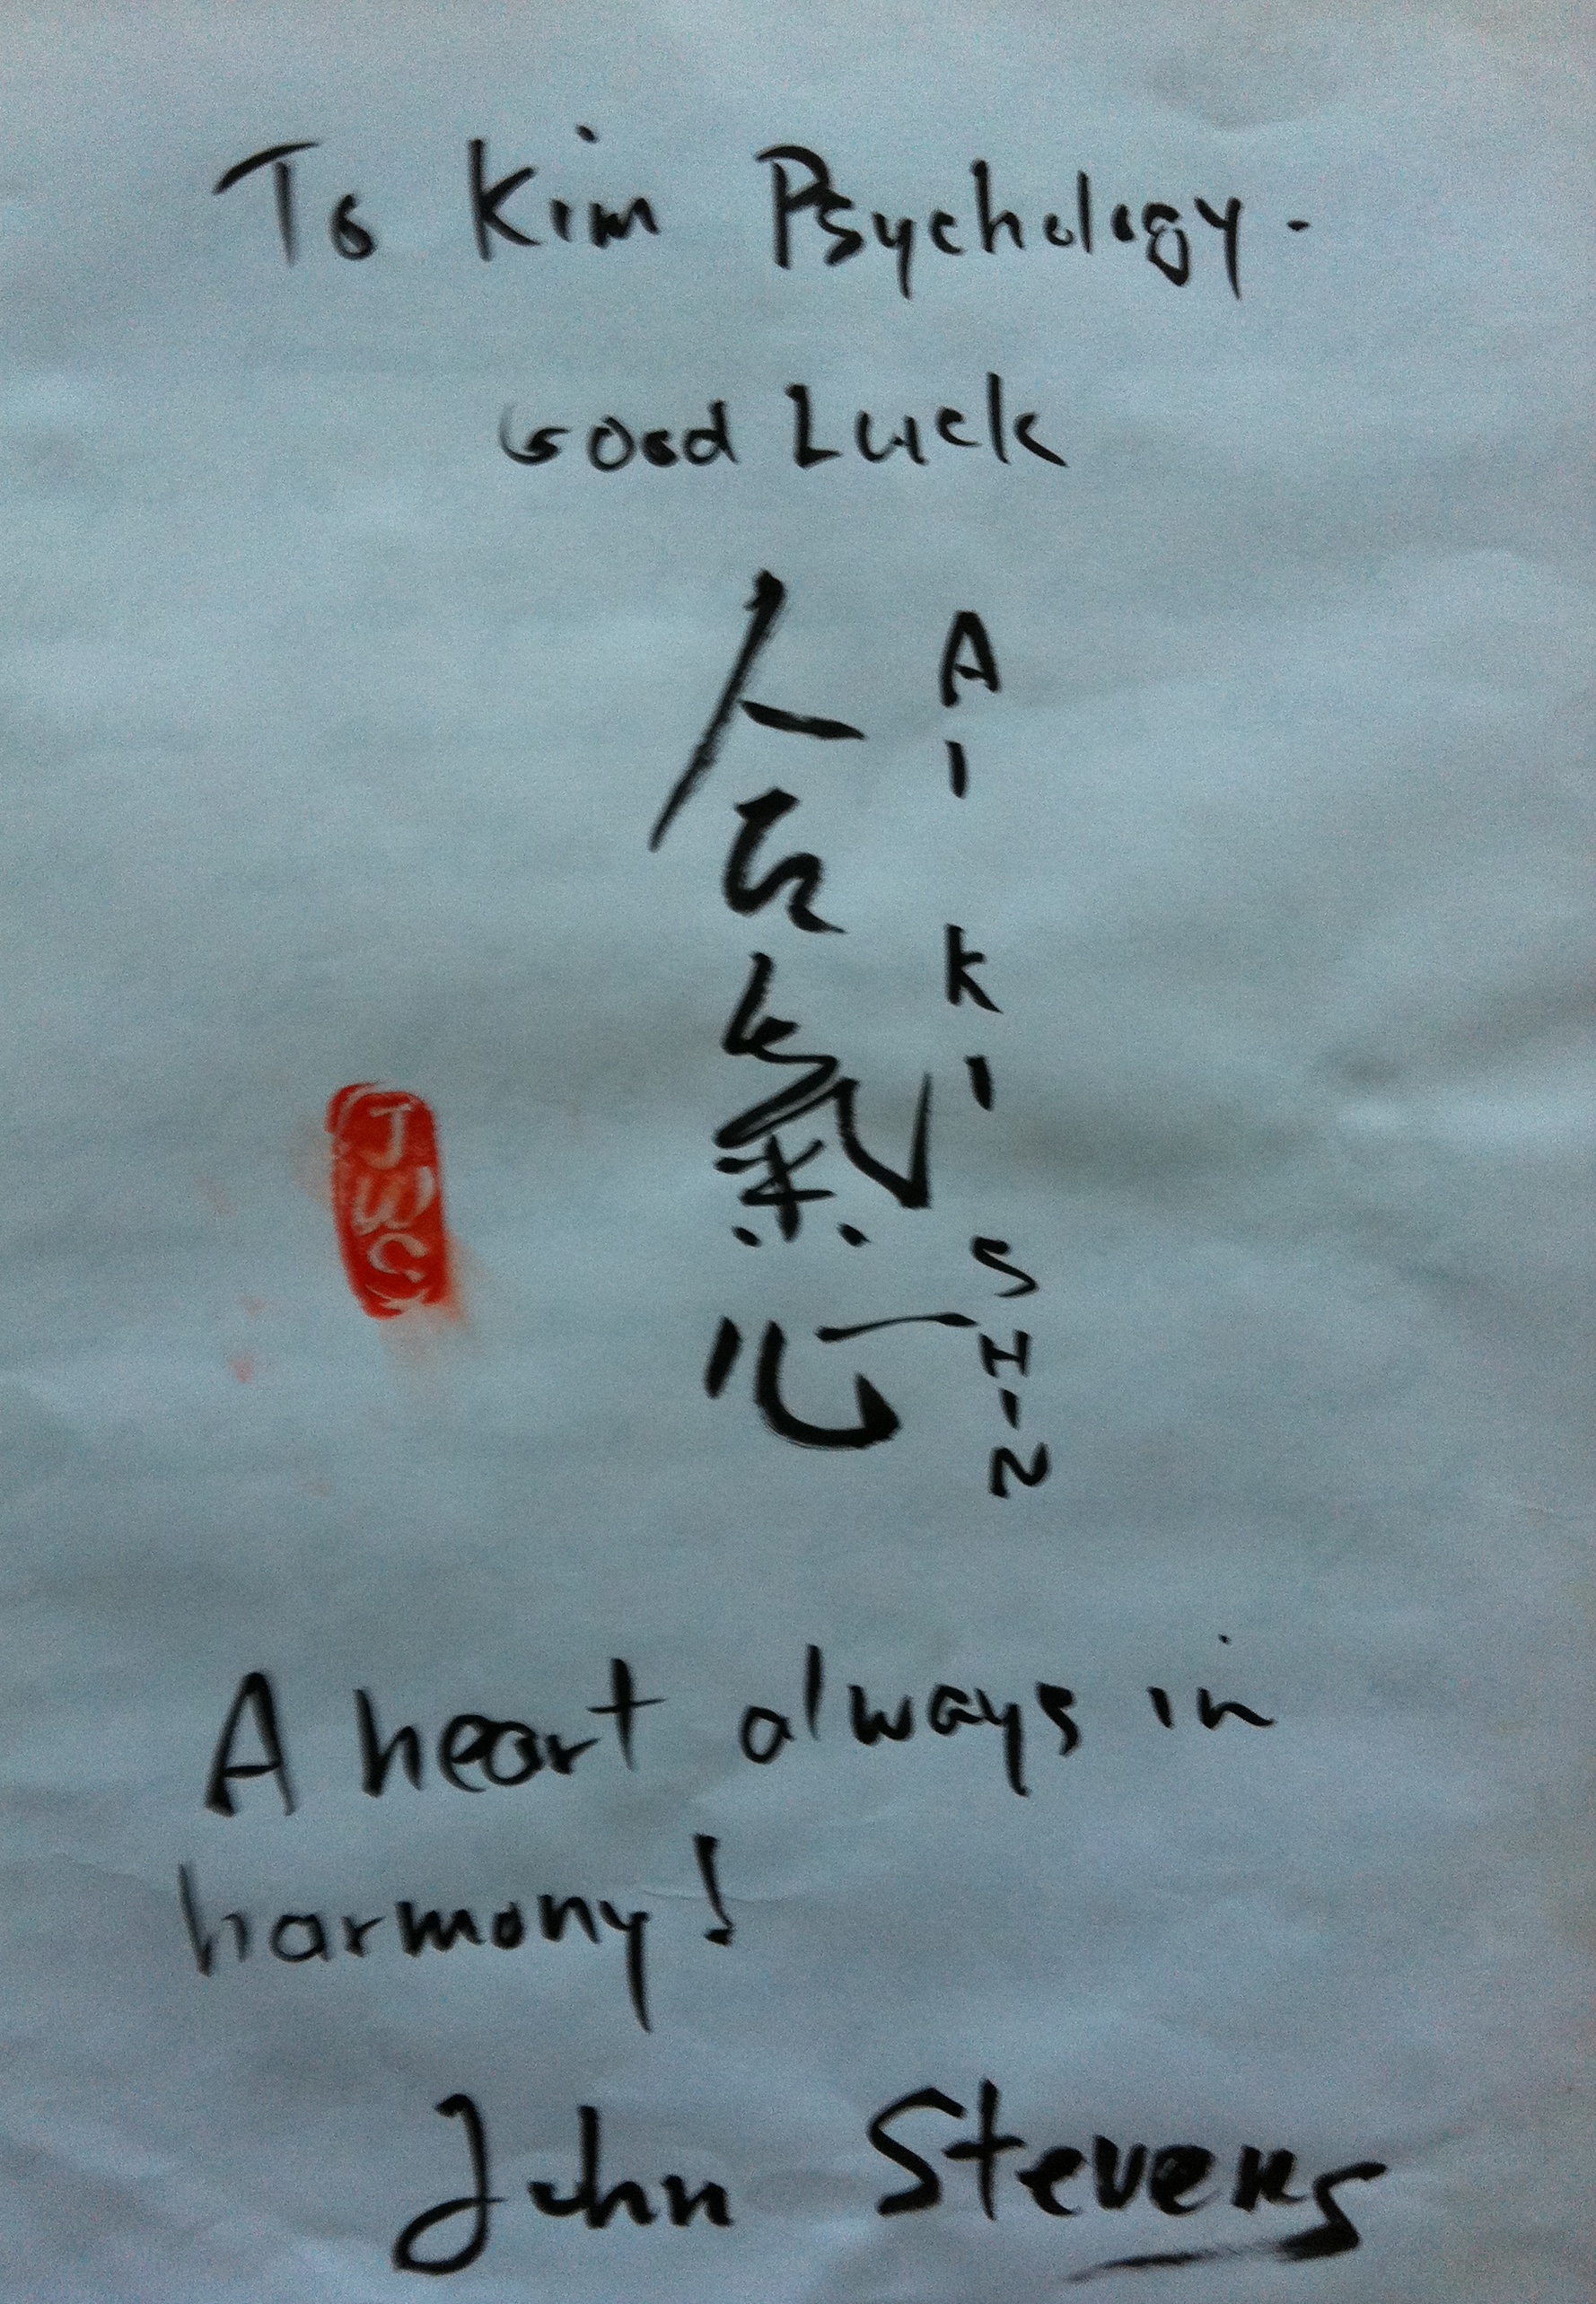 To Kim Psychology.
Good Luck
合氣心
AIKI SHIN
JWS
A heart always in
harmony!
John Stevens